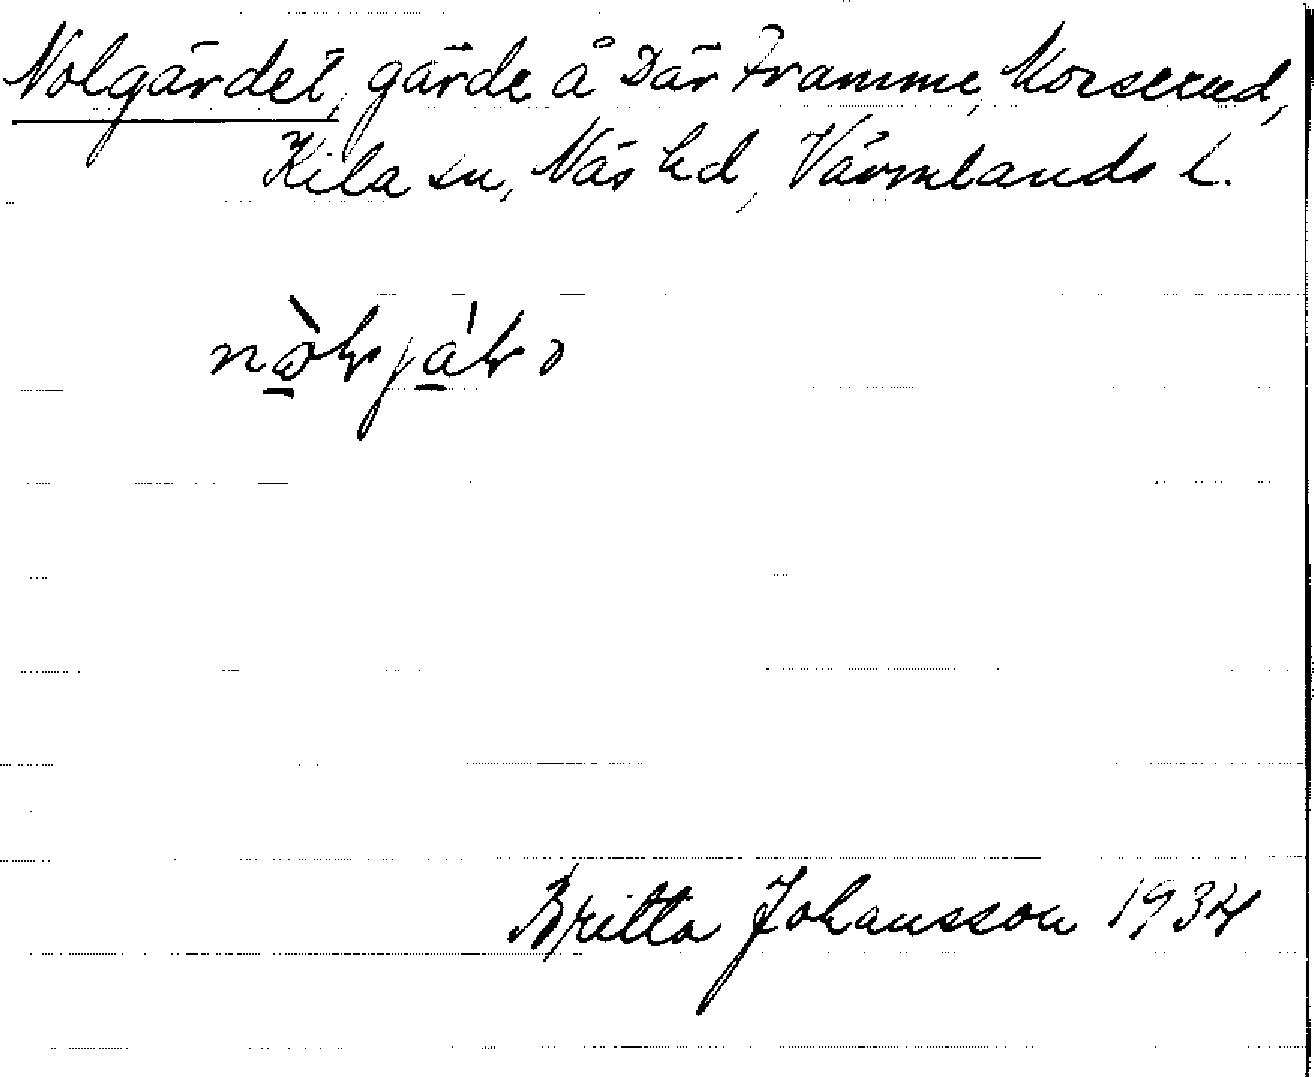 Nolgärdet, gärde å Där Framme, Korserud,
Kila sn, Näs hd, Värmlands l.
Britta Johansson 1934